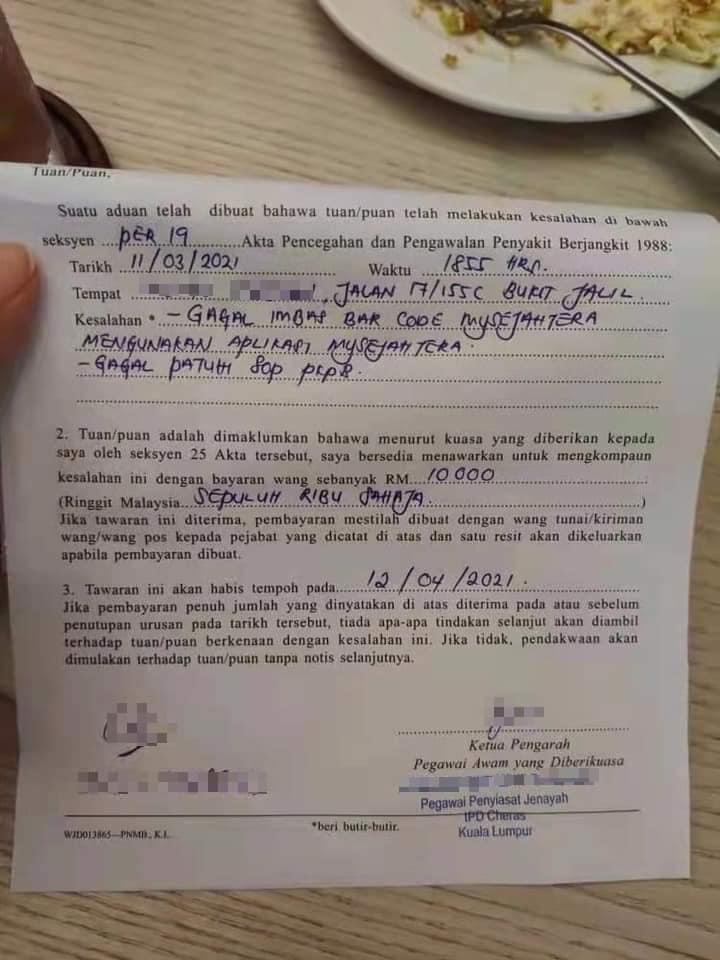 Tuan/Puan,
Suatu aduan telah dibuat bahawa tuan/puan telah melakukan kesalahan di bawah
seksyen ....PER 19..........Akta Pencegahan dan Pengawalan Penyakit Berjangkit 1988:
Tarikh 11/03/2021 Waktu 1855 HRS.
Tempat , JALAN 17/155C BUKIT JALIL.
Kesalahan * – GAGAL IMBAS BAR CODE MYSEJAHTERA
MENGUNAKAN APLIKASI MYSEJAHTERA.
– GAGAL PATUH SOP PKPB.
2. Tuan/puan adalah dimaklumkan bahawa menurut kuasa yang diberikan kepada
saya oleh seksyen 25 Akta tersebut, saya bersedia menawarkan untuk mengkompaun
kesalahan ini dengan bayaran wang sebanyak RM....10 000
(Ringgit Malaysia...SEPULUH RIBU SAHAJA.)
Jika tawaran ini diterima, pembayaran mestilah dibuat dengan wang tunai/kiriman
wang/wang pos kepada pejabat yang dicatat di atas dan satu resit akan dikeluarkan
apabila pembayaran dibuat.
3. Tawaran ini akan habis tempoh pada......12/04/2021.
Jika pembayaran penuh jumlah yang dinyatakan di atas diterima pada atau sebelum
penutupan urusan pada tarikh tersebut, tiada apa-apa tindakan selanjut akan diambil
terhadap tuan/puan berkenaan dengan kesalahan ini. Jika tidak, pendakwaan akan
dimulakan terhadap tuan/puan tanpa notis selanjutnya.
Ketua Pengarah
Pegawai Awam yang Diberikuasa
Pegawai Penyiasat Jenayah
IPD Cheras
Kuala Lumpur
*beri butir-butir.
WJD013865—PNMB., K.L.